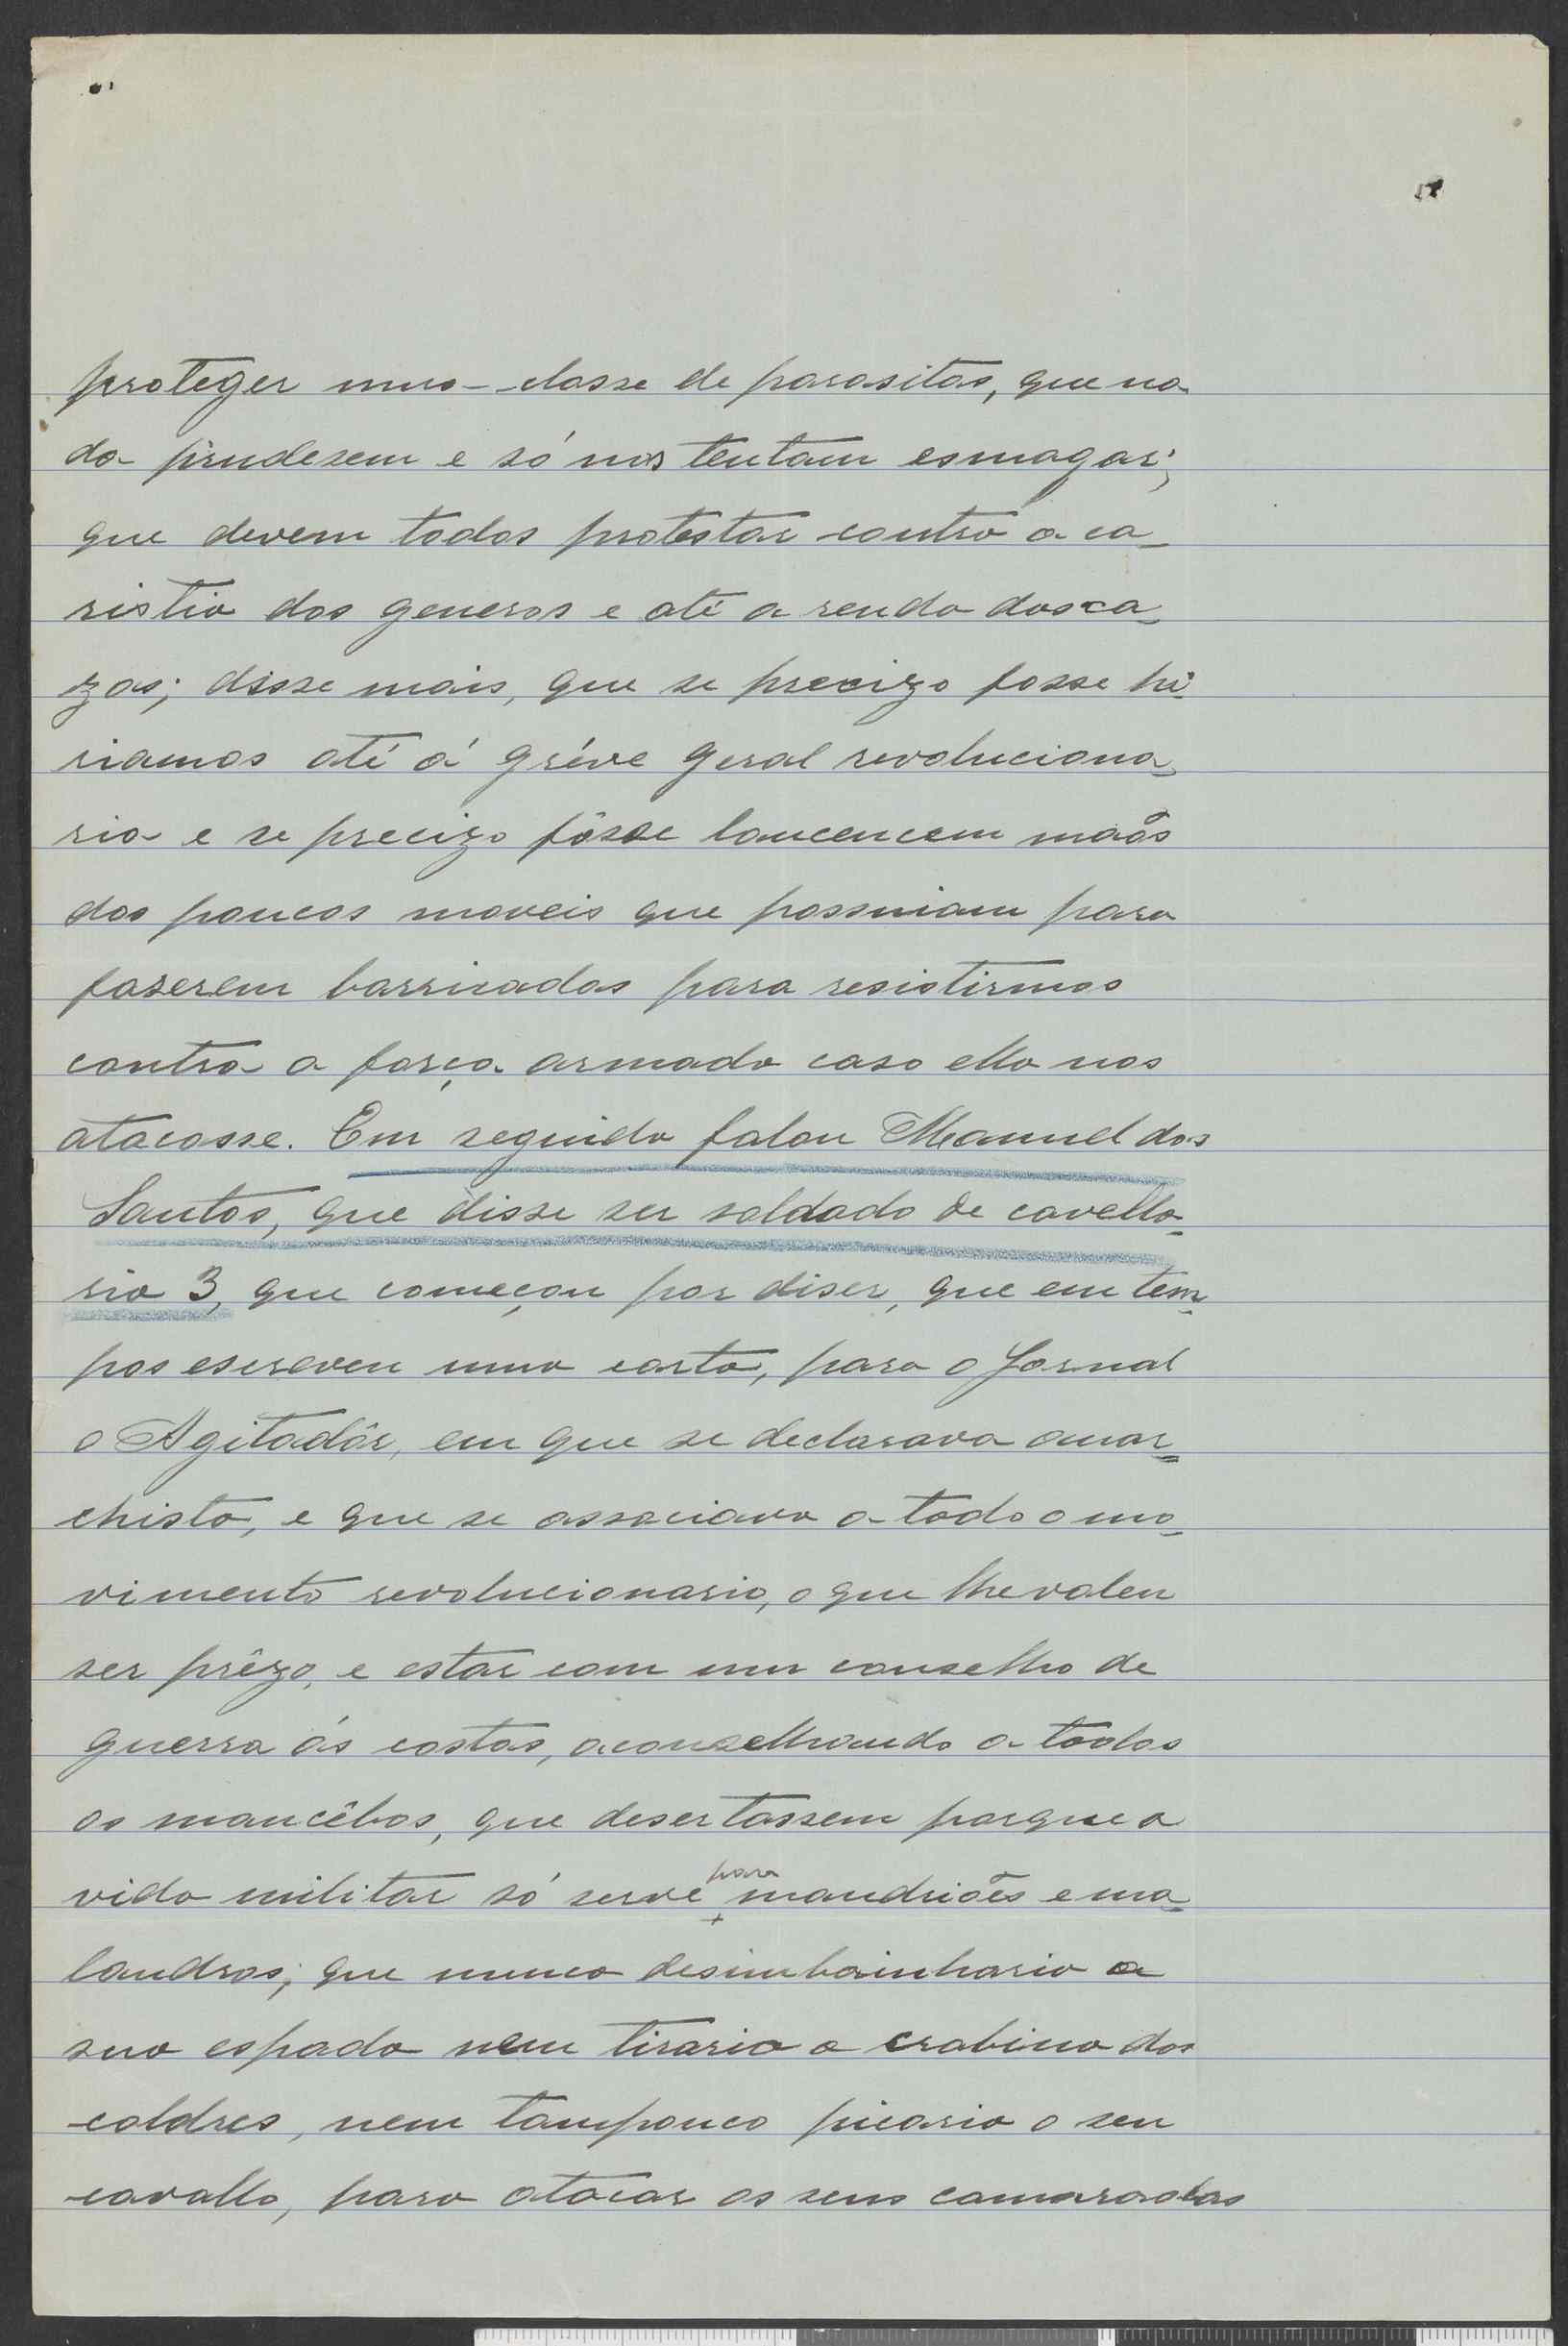 proteger uma classe de parasitas, que na
da prudesem e só nos tentam esmagar;
que devem todos protestar contra a ca-
ristia dos generos e até a renda das ca-
zas; disse mais, que se precizo fosse hi-
riamos até á gréve geral revoluciona-
ria e se precizo fôsse lancencem maõs
dos poucos moveis que possuiam para
faserem barricadas para resistirmos
contra a força armada caso ella nos
atacasse. Em seguida falou Manuel dos
Santos, que disse ser soldado de cavella-
ria 3, que começou por diser, que em tem-
pos escreveu uma carta, para o Jornal
o Agitadôr, em que se declarava anar-
chista, e que se associava a todo o mo-
vimento revolucionario, o que lhe valeu
ser prêzo, e estar com um conselho de
guerra ás costas, aconselhando a todos
os mancêbos, que desertassem porque a
vida militar só serve para mandriões e ma-
landros; que nunca desimbainharia a
sua espada nem tiraria a crabina dos
coldres, nem tampouco picaria o seu
cavallo, para atacar os seus camaradas